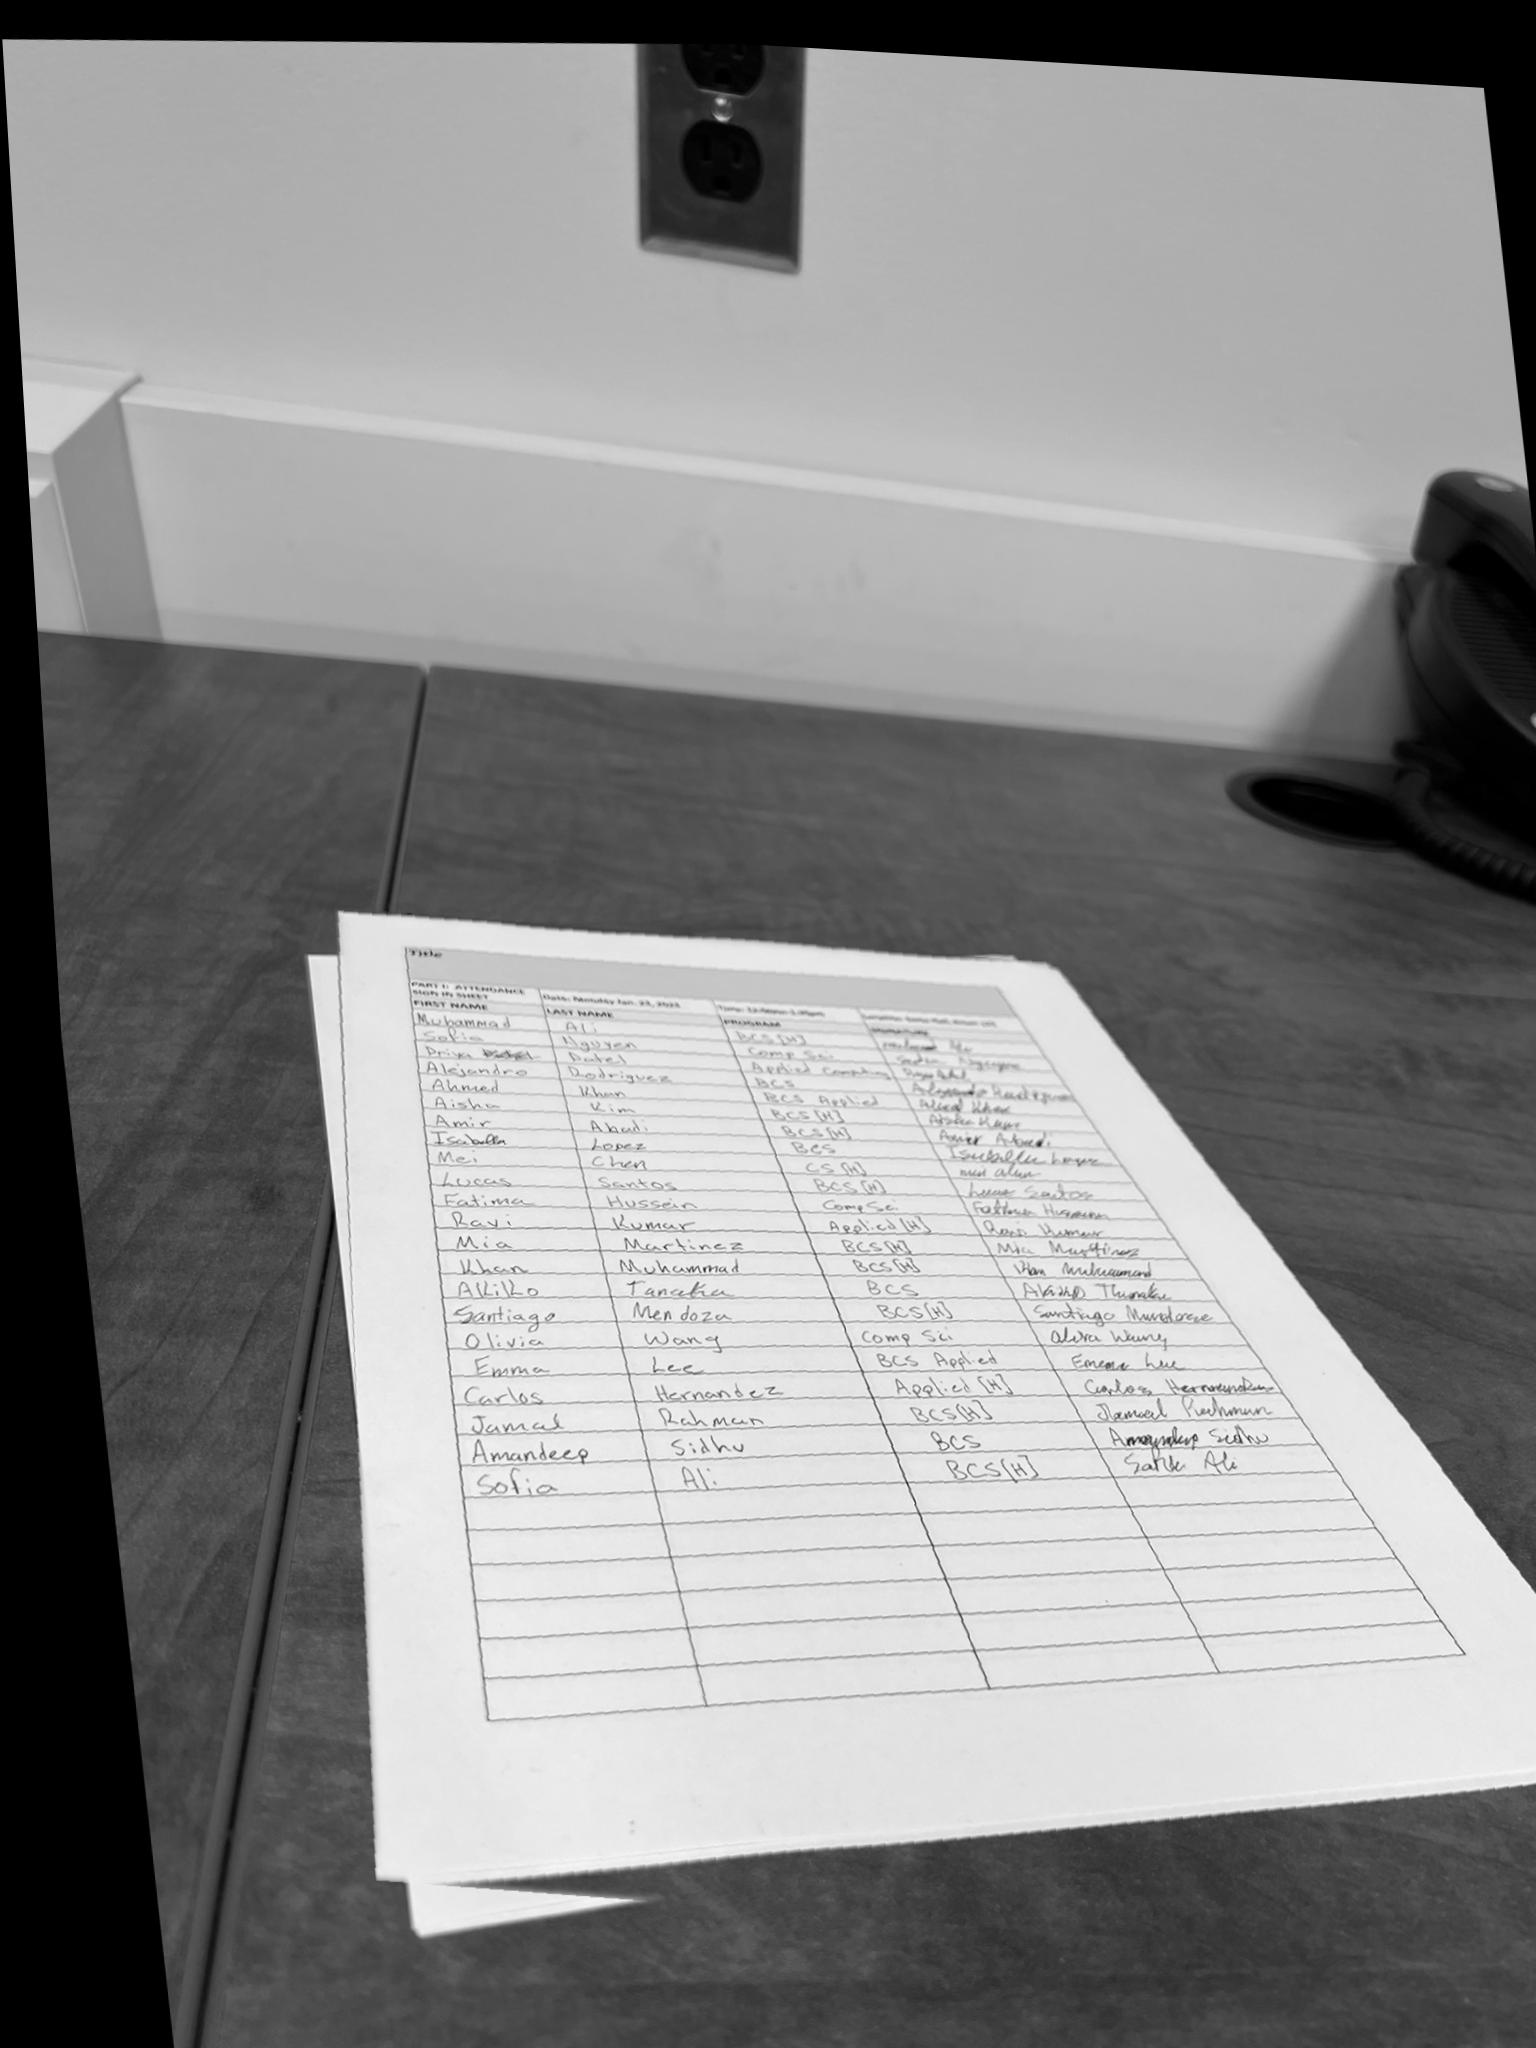 Title
PART I: ATTENDANCE SIGN IN SHEET Date: Monday Jan. 23, 2023
FIRST NAME LAST NAME PROGRAM SIGNATURE
Muhammad Ali BCS [H]
Sofia Nguyen Comp Sci
Priya Patel Applied Computing
Alejandro Rodriguez BCS
Ahmed Khan BCS Applied Ahmed Khan
Aisha Kim BCS [H] Aisha Kim
Amir Abadi BCS [H] Amir Abadi
Isabella Lopez BCS Isabella Lopez
Mei Chen CS [H] mei chen
Lucas Santos BCS [H] Lucas Santos
Fatima Hussein CompSci Fatima Hussein
Ravi Kumar Applied [H] Ravi Kumar
Mia Martinez BCS [H] Mia Martinez
Khan Muhammad BCS [H] Khan Muhammad
Akiko Tanaka BCS
Santiago Mendoza BCS [H] Santiago
Olivia Wang Comp Sci
Emma Lee BCS Applied Emma Lee
Carlos Hernandez Applied [H] Carlos
Jamal Rahman BCS[H]
Amandeep Sidhu BCS Sidhu
Sofia Ali BCS[H] Ali